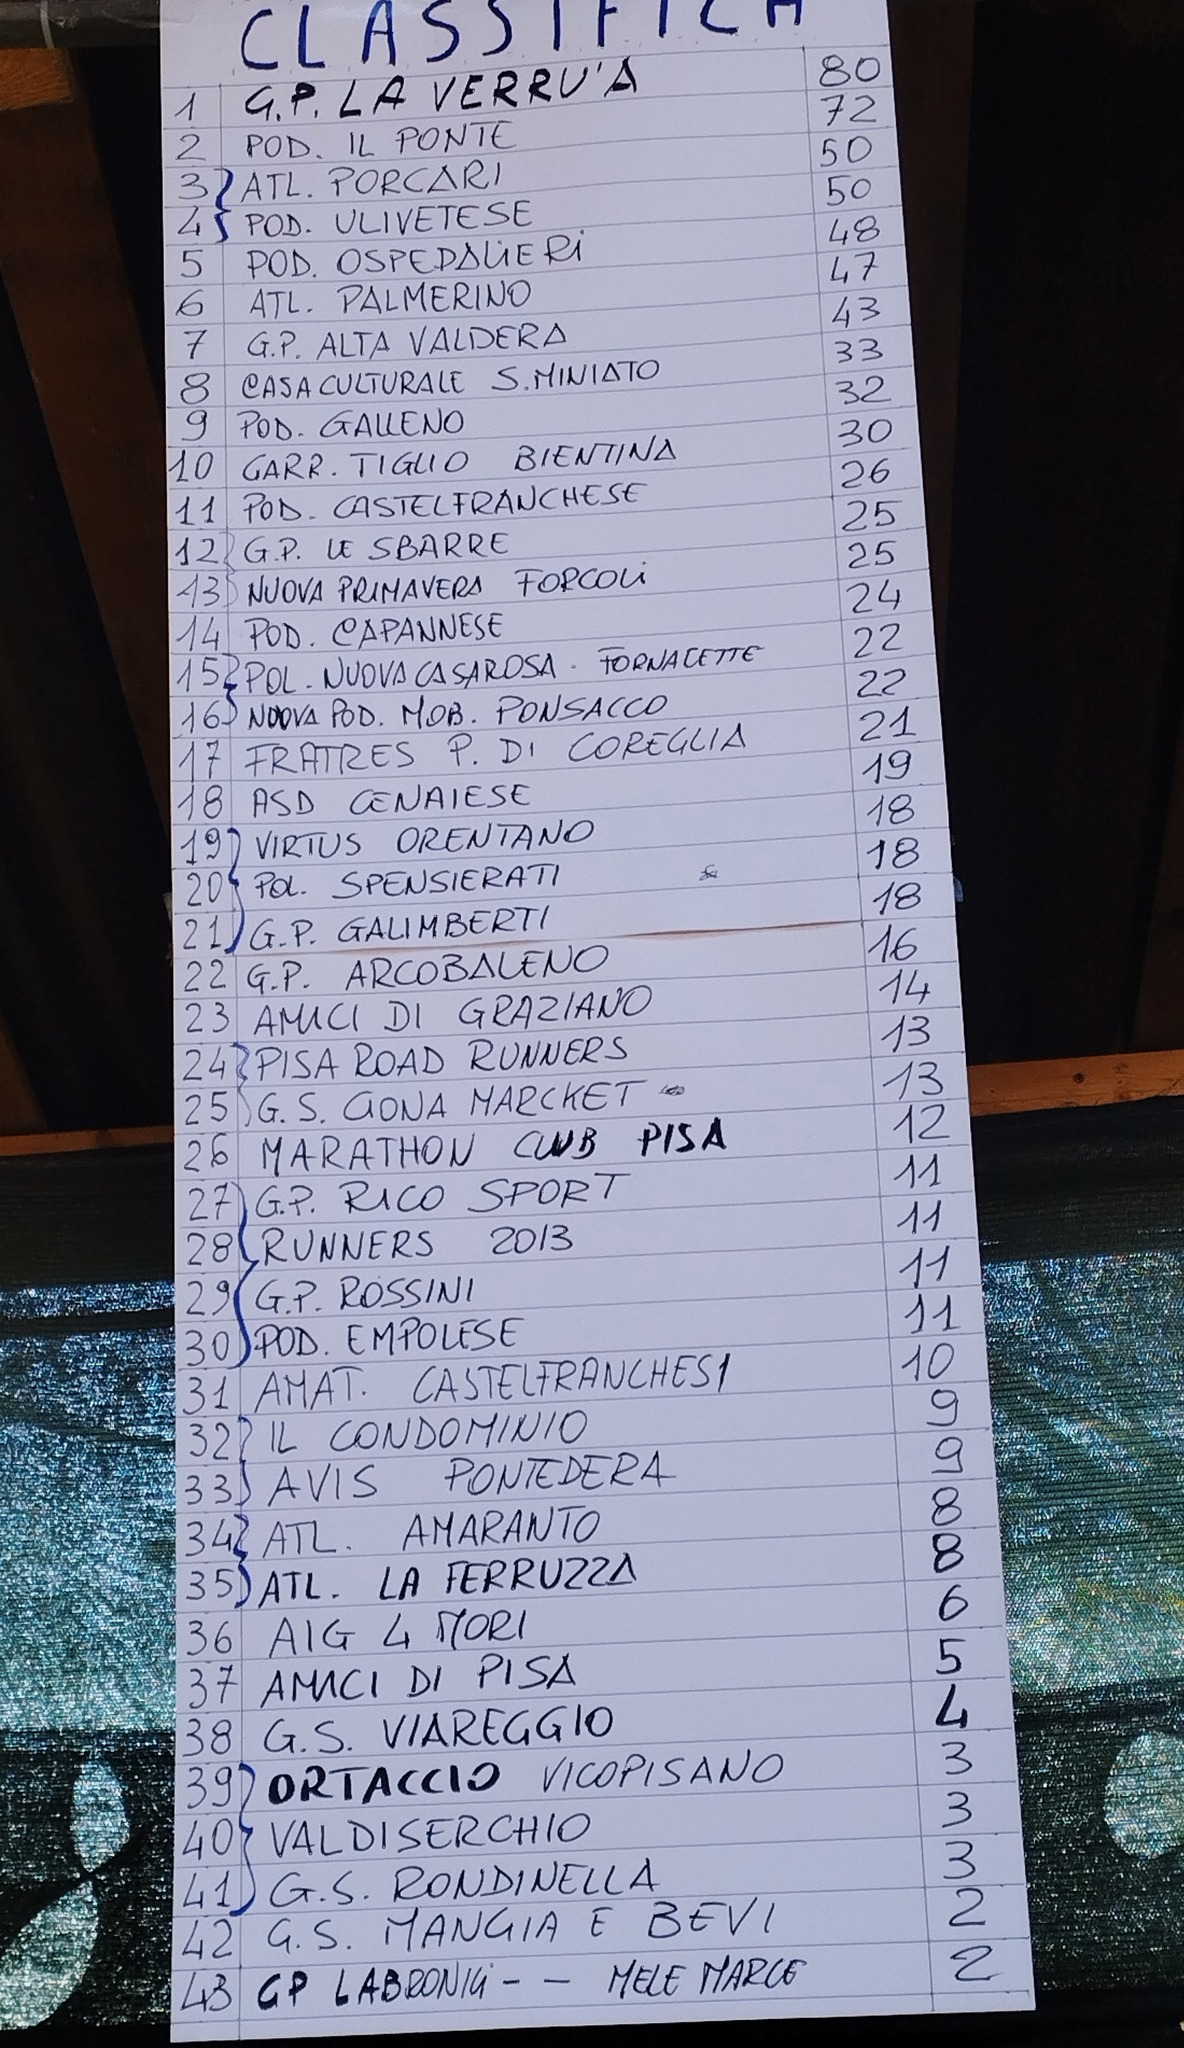 CLASSIFICA
1 G.P. LA VERRU'A 80
2 POD. IL PONTE 72
3 ATL. PORCARI 50
4 POD. ULIVETESE 50
5 POD. OSPEDALIERI 48
6 ATL. PALMERINO 47
7 G.P. ALTA VALDERA 43
8 CASA CULTURALE S. MINIATO 33
9 POD. GALLENO 32
10 GARR. TIGLIO BIENTINA 30
11 POD. CASTELFRANCHESE 26
12 G.P. LE SBARRE 25
13 NUOVA PRIMAVERA FORCOLI 25
14 POD. CAPANNESE 24
15 POL. NUOVA CASAROSA - FORNACETTE 22
16 NUOVA POD. MOB. PONSACCO 22
17 FRATRES P. DI COREGLIA 21
18 ASD CENAIESE 19
19 VIRTUS ORENTANO 18
20 POL. SPENSIERATI 18
21 G.P. GALIMBERTI 18
22 G.P. ARCOBALENO 16
23 AMICI DI GRAZIANO 14
24 PISA ROAD RUNNERS 13
25 G.S. GONA MARCKET 13
26 MARATHON CLUB PISA 12
27 G.P. RICO SPORT 11
28 RUNNERS 2013 11
29 G.P. ROSSINI 11
30 POD. EMPOLESE 11
31 AMAT. CASTELFRANCHESI 10
32 IL CONDOMINIO 9
33 AVIS PONTEDERA 9
34 ATL. AMARANTO 8
35 ATL. LA FERRUZZA 8
36 AIG 4 MORI 6
37 AMICI DI PISA 5
38 G.S. VIAREGGIO 4
39 ORTACCIO VICOPISANO 3
40 VALDISERCHIO 3
41 G.S. RONDINELLA 3
42 G.S. MANGIA E BEVI 2
43 GP LABRONICI - - MELE MARCE 2